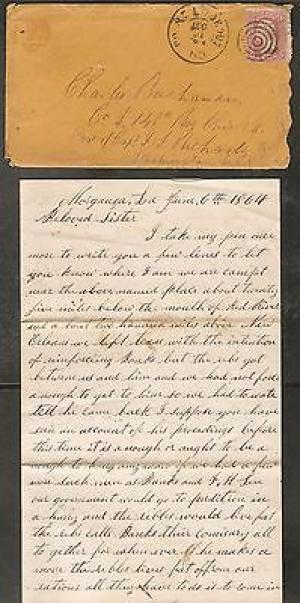 POINT LOOKOUT
MD
Charles Buchanan
Co
Care of Capt
Morganza, La June 6th 1864
Beloved Sister
I take my pen once
more to write you a few lines to let
you know where I am we are campt
near the above named place about twenty
five miles below the mouth of Red River
and a bout two hundred miles above New
Orleans we left with the intention
of reinforcing Banks but the rebs got
between us and him and we had not force
a nough to get to him so we had to wate
till he came back I suppose you have
seen an account of his procedings before
this time it is a nough or ought to be a
nough to hang any man if we had a few
more such men as Banks and
our government would go to perdition in
a hurry and the rebles would
the rebs calls Banks their comisary all
to gether for when ever he makes a
move the rebles lives
rations all they have to do is to come in